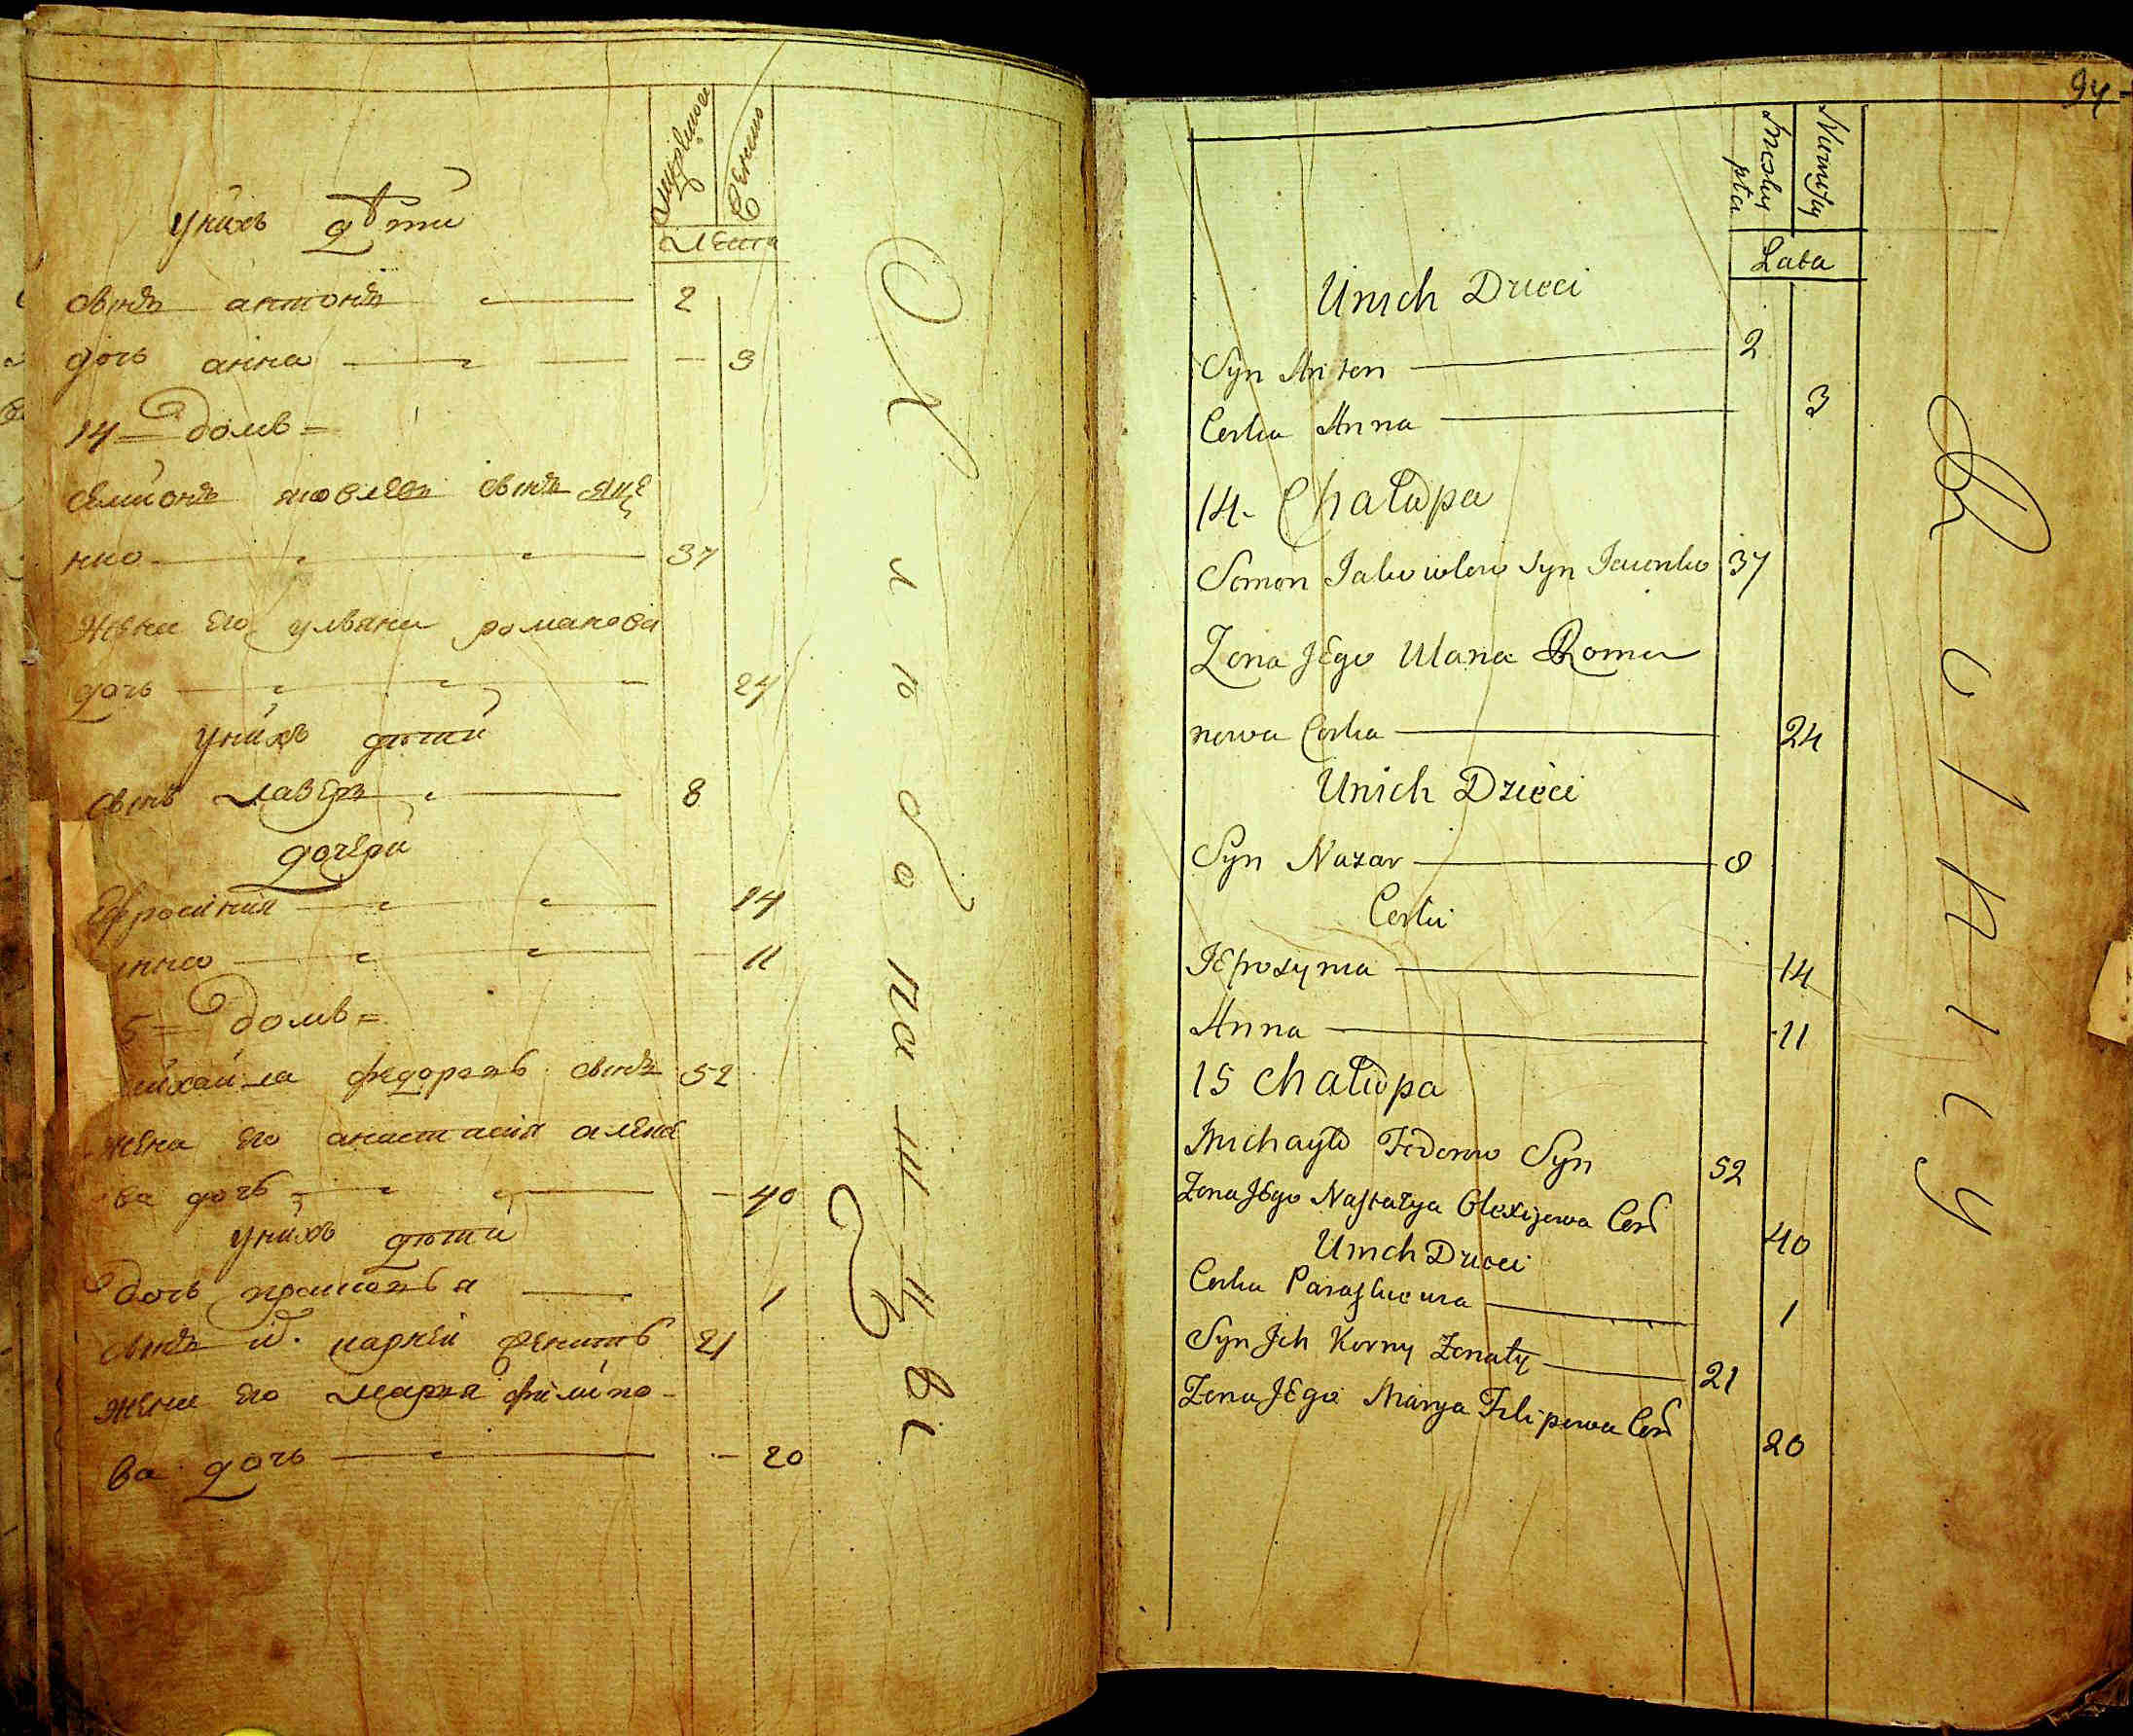 Женско
Лета
У нихъ дѣти
сынъ антонъ 2
дочь анна 3
14 = домъ =
семионъ яковлевъ сынъ яце
нко 37
жена его ульяна романова
дочь 24
У нихъ дѣти
сынъ лаверъ 8
дочери
Ефросиния 14
анна 11
5 = домъ =
михайла федоровъ сынъ 52
жена его анастасия алексе
ва дочь 40
У нихъ дѣти
дочь 1
сынъ их карнѣй женатъ 21
жена его марья филипо-
ва дочь 20
Хлѣбопашцы
94
Męsky
płca
Niewiasty
Lata
Unich Dzieci
Syn Anton 2
Corka Anna 3
14. Chałupa
Semen Jakowlew Syn Jacenko 37
Zona JEgo Ulana Roma
nowa Corka 24
Unich Dzieci
Syn Nazar 8
Corki
JEfrozynia 14
Anna 11
15 Chałupa
Michayło Fedorow Syn 52
Zona JEgo Nastazya Olexijewa Cor 40
Unich Dzieci
Corka Paraskiewia 1
Syn Jch Korny Zonaty 21
Zona JEgo Marya Filipowa Cor 20
Rolnicy